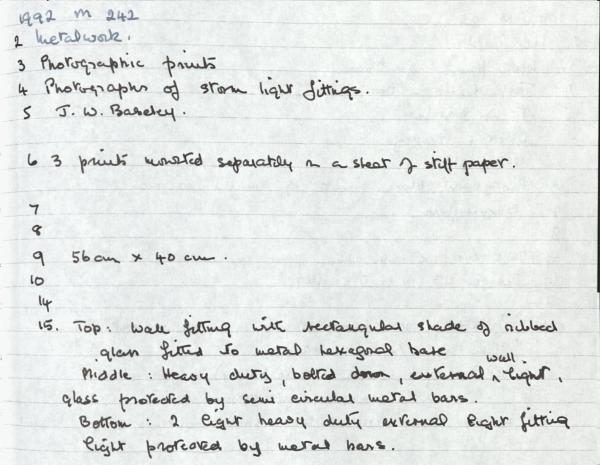 1992 M 242
2 Metalwork.
3 Photographic prints
4 Photographs of storm light fittings.
5 J. W. Baseley.
6 3 prints mounted separately on a sheet of stiff paper.
7
8
9 56cm x 40 cm.
10
14
15. Top: Wall fitting with rectangular shade of ribbed
glass fitted to metal hexagonal base
Middle: Heavy duty, bolted down, external wall light,
glass protected by semi circular metal bars.
Bottom: 2 light heavy duty external light fitting
light protected by metal bars.